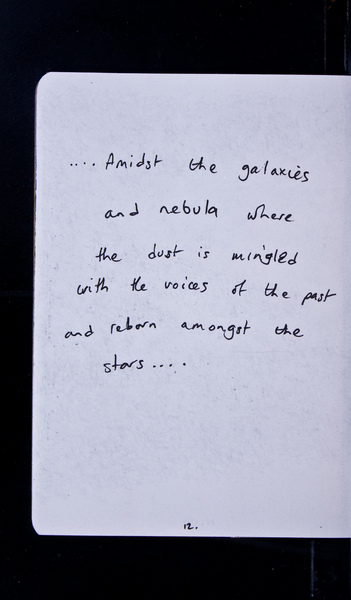 .... Amidst the galaxies
and nebula where
the dust is mingled
with the voices of the past
and reborn amongst the
stars....
12.